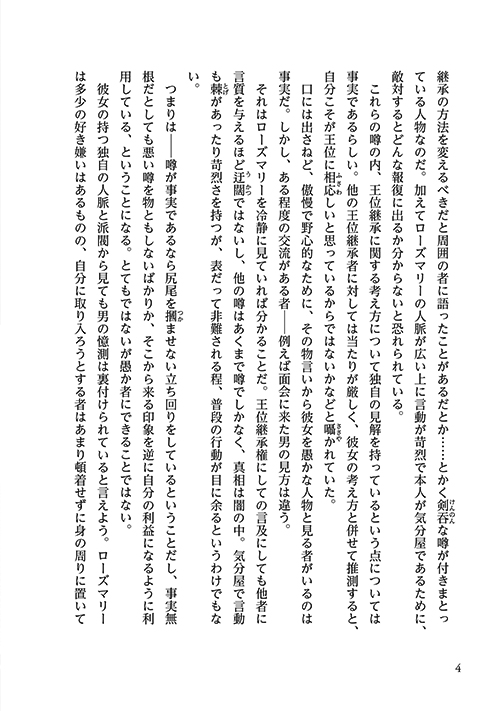 継承の方法を変えるべきだと周囲の者に語ったことがあるだとか……とかく剣呑な噂が付きまとっ
ている人物なのだ。加えてローズマリーの人脈が広い上に言動が苛烈で本人が気分屋であるために、
敵対するとどんな報復に出るか分からないと恐れられている。
これらの噂の内、王位継承に関する考え方について独自の見解を持っているという点については
事実であるらしい。他の王位継承者に対しては当たりが厳しく、彼女の考え方と併せて推測すると、
自分こそが王位に相応しいと思っているからではないかなどと囁かれていた。
口には出さねど、傲慢で野心的なために、その物言いから彼女を愚かな人物と見る者がいるのは
事実だ。しかし、ある程度の交流がある者――例えば面会に来た男の見方は違う。
それはローズマリーを冷静に見ていれば分かることだ。王位継承権にしての言及にしても他者に
言質を与えるほど迂闊ではないし、他の噂はあくまで噂でしかなく、真相は闇の中。気分屋で言動
も棘があったり苛烈さを持つが、表だって非難される程、普段の行動が目に余るというわけでもな
い。
つまりは――噂が事実であるなら尻尾を摑ませない立ち回りをしているということだし、事実無
根だとしても悪い噂を物ともしないばかりか、そこから来る印象を逆に自分の利益になるように利
用している、ということになる。とてもではないが愚か者にできることではない。
彼女の持つ独自の人脈と派閥から見ても男の憶測は裏付けられていると言えよう。ローズマリー
は多少の好き嫌いはあるものの、自分に取り入ろうとする者はあまり頓着せずに身の周りに置いて
けんのん
ふさわ
ささや
とげ
うかつ
つか
4